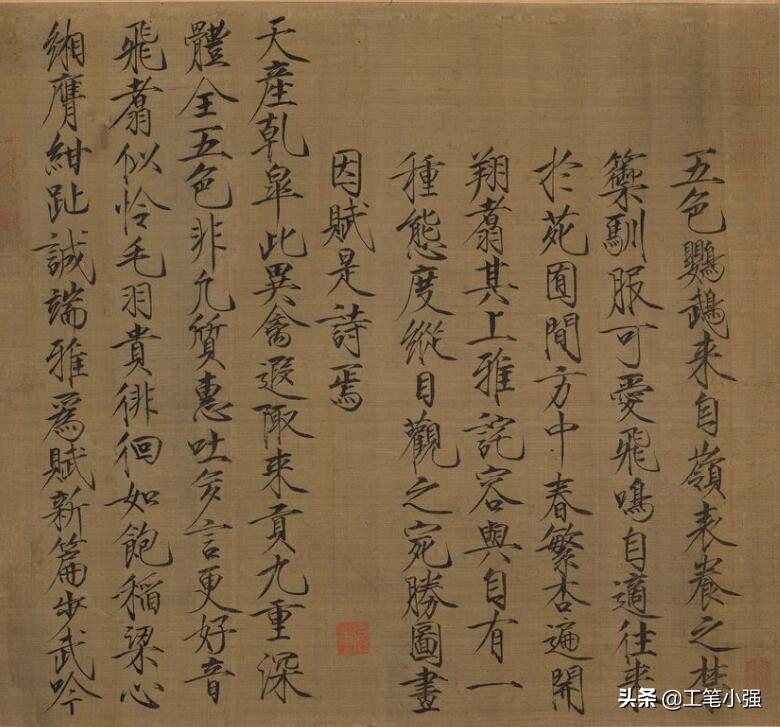 五色鸚鵡来自嶺表養之禁
籞馴服可愛飛鳴自適往来
於苑囿間方中春繁杏遍開
翔翥其上雅詫容與自有一
種態度縱目觀之宛勝圖畫
因賦是詩焉
天産乾皐此異禽遐陬来貢九重深
體全五色非凡質惠吐多言更好音
飛翥似怜毛羽貴徘徊如飽稻粱心
緗膺紺趾誠端雅爲賦新篇步武吟
头条 @工笔小强